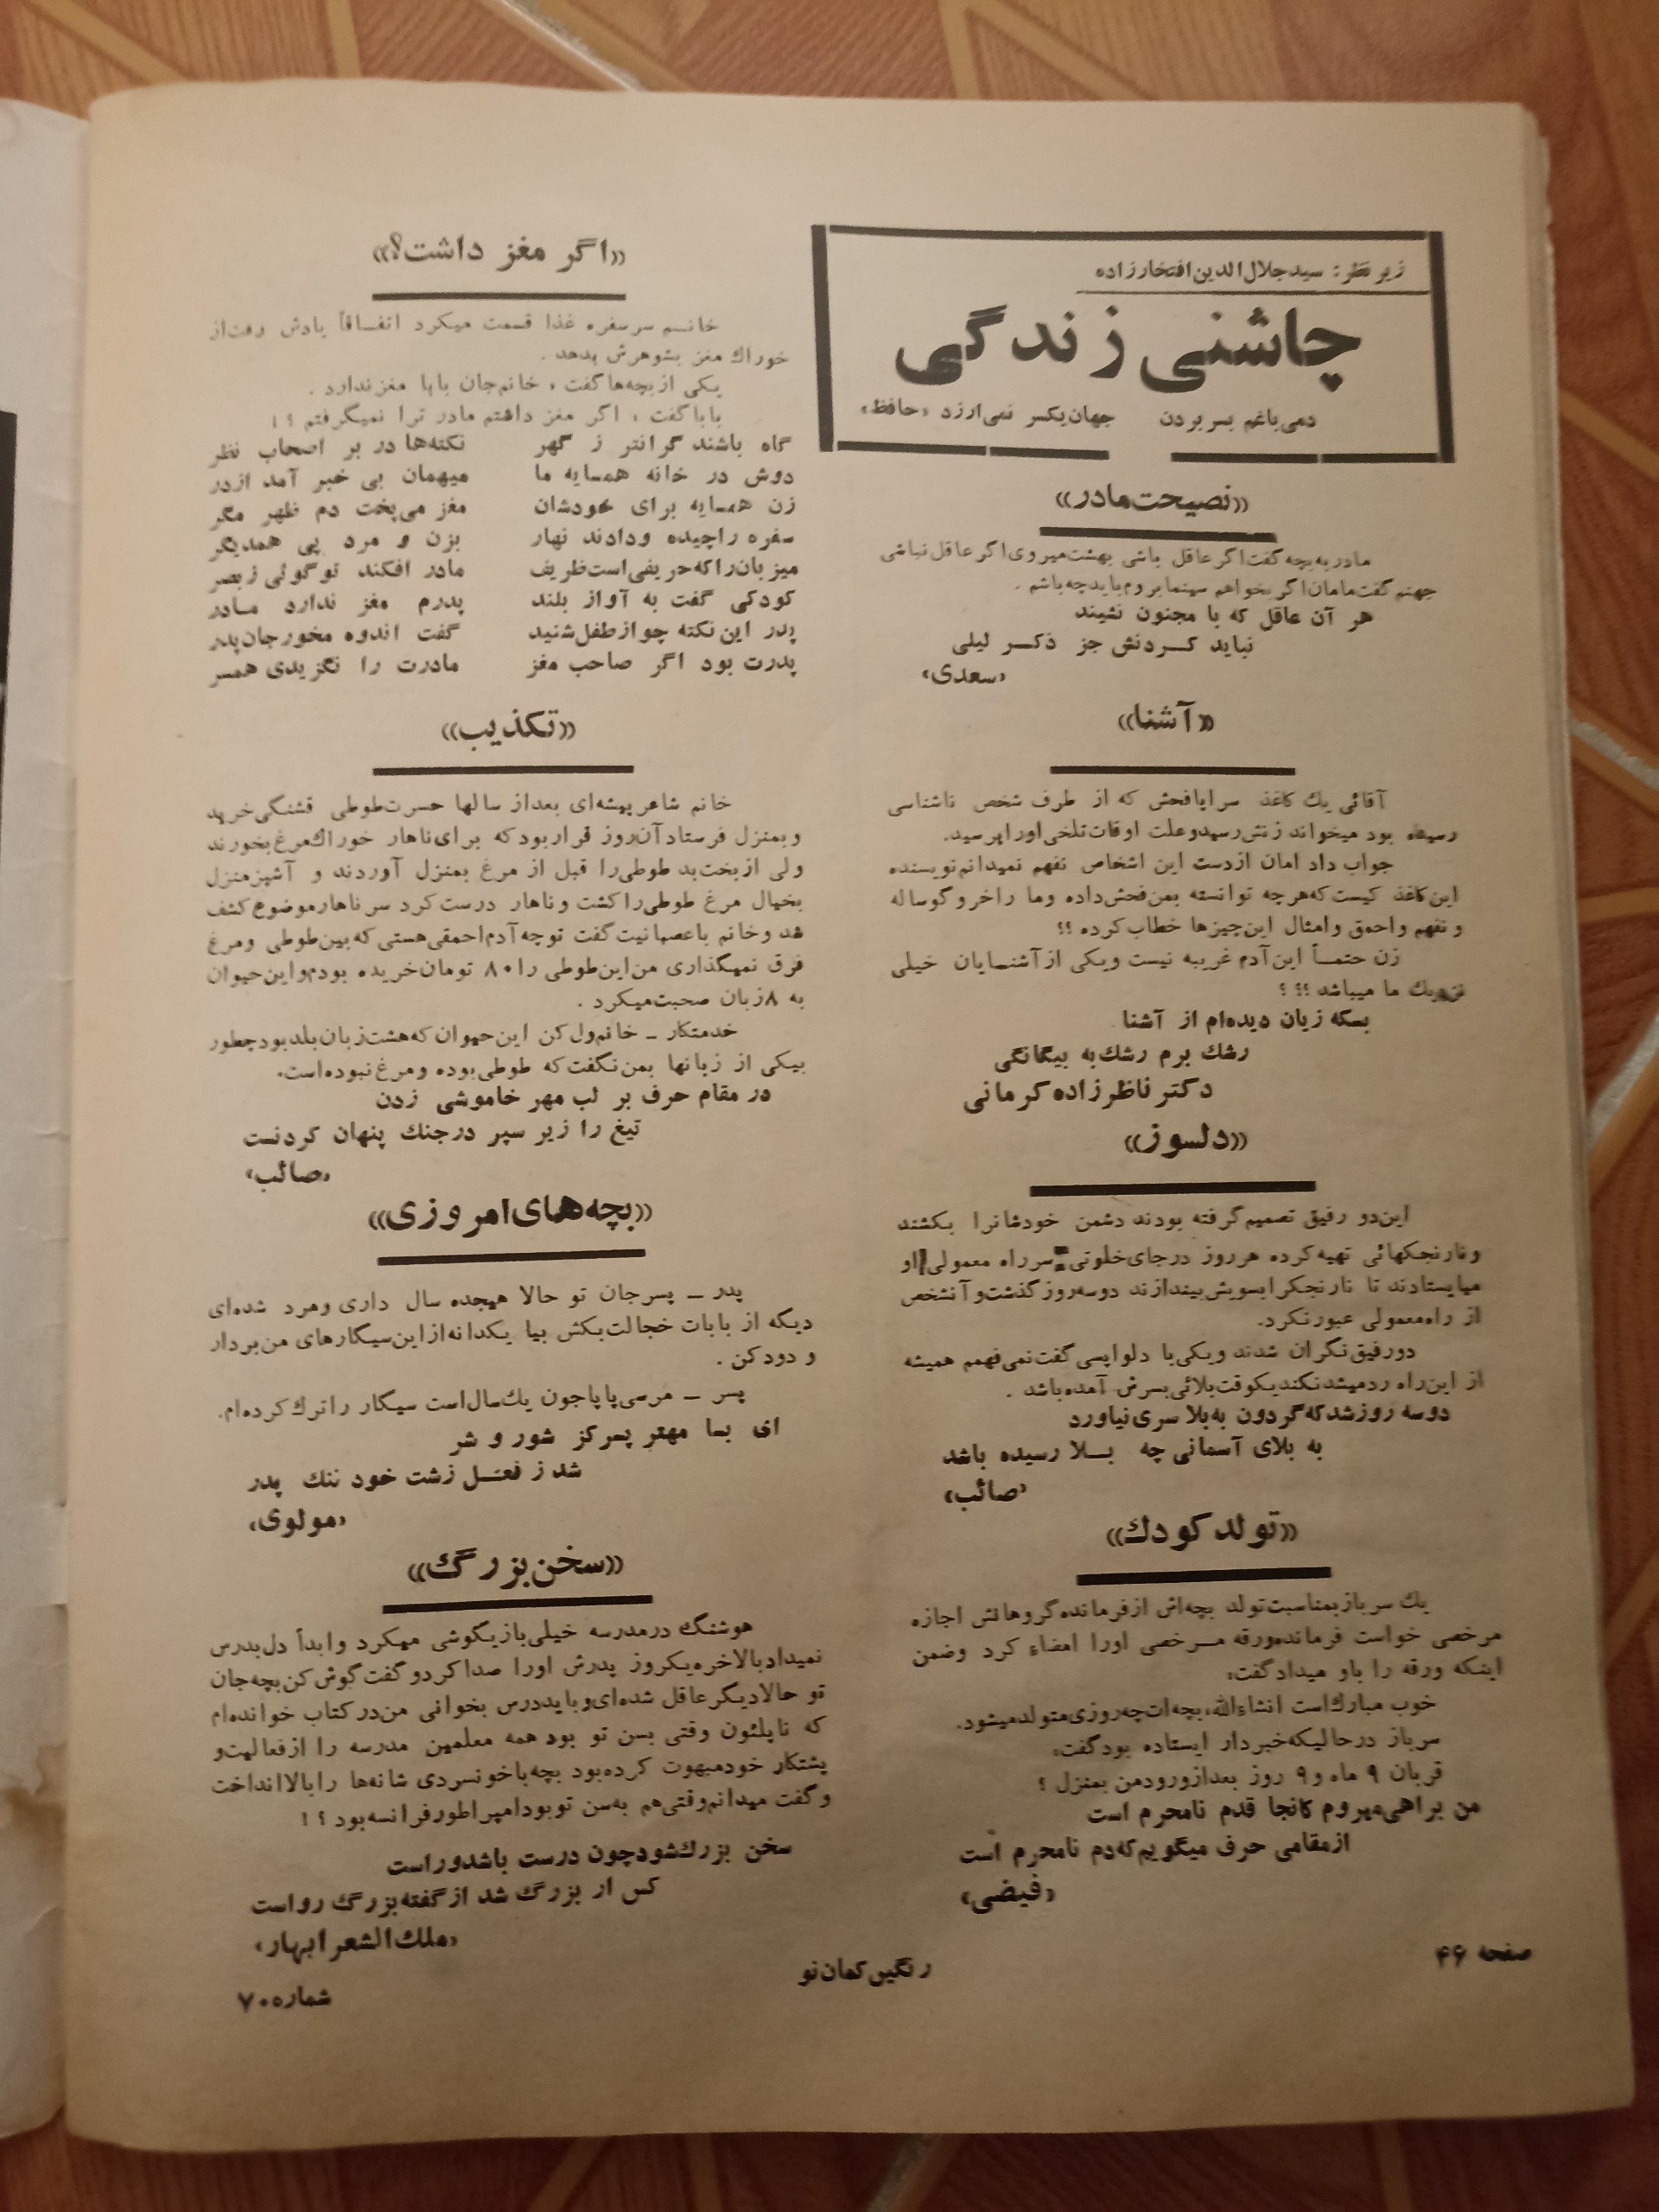 زیر نظر: سید جلال‌الدین افتخارزاده
چاشنی زندگی
دمی باغم بسر بردن جهان یکسر نمی‌ارزد «حافظ»
«نصیحت مادر»
مادر به بچه گفت اگر عاقل باشی بهشت میروی اگر عاقل نباشی
جهنم گفت مامان اگر بخواهم سینما بروم باید چه باشم .
هر آن عاقل که با مجنون نشیند
نباید کردنش جز ذکر لیلی
«سعدی»
«آشنا»
آقائی یك کاغذ سراپا فحش که از طرف شخص ناشناسی
رسیده بود میخواند زنش رسید و علت اوقات تلخی او را پرسید.
جواب داد امان از دست این اشخاص نفهم نمیدانم نویسنده
این کاغذ کیست که هر چه توانسته بمن فحش داده و ما را خر و گوساله
و نفهم و احمق و امثال این چیزها خطاب کرده ؟؟
زن حتماً این آدم غریبه نیست و یکی از آشنایان خیلی
نزدیك ما میباشد ؟؟ ؟
بسکه زیان دیده‌ام از آشنا
رشك برم رشك به بیگانگی
دکتر ناظرزاده کرمانی
«دلسوز»
این دو رفیق تصمیم گرفته بودند دشمن خودشانرا بکشند
و نارنجکهائی تهیه کرده هر روز در جای خلوتی سر راه معمولی او
میایستادند تا نارنجکرا بسویش بیندازند دو سه روز گذشت و آنشخص
از راه معمولی عبور نکرد.
دو رفیق نگران شدند و یکی با دلواپسی گفت نمی‌فهمم همیشه
از این راه رد میشد نکند یکوقت بلائی بسرش آمده باشد .
دو سه روز شد که گردون به بلا سری نیاورد
به بلای آسمانی چه بلا رسیده باشد
«صائب»
«تولد کودك»
یك سرباز بمناسبت تولد بچه‌اش از فرمانده گروهانش اجازه
مرخصی خواست فرمانده ورقه مرخصی اورا امضاء کرد وضمن
اینکه ورقه را باو میداد گفت:
خوب مبارك است انشاءالله، بچه‌ات چه روزی متولد میشود.
سرباز در حالیکه خبردار ایستاده بود گفت:
قربان ۹ ماه و ۹ روز بعد از ورود من بمنزل ؟
من براهی میروم کانجا قدم نامحرم است
از مقامی حرف میگویم که دم نامحرم است
«فیضی»
«اگر مغز داشت؟»
خانم سر سفره غذا قسمت میکرد اتفاقاً یادش رفت از
خوراك مغز بشوهرش بدهد .
یکی از بچه‌ها گفت ، خانم جان بابا مغز ندارد .
بابا گفت ، اگر مغز داشتم مادر ترا نمیگرفتم ؟ !
گاه باشند گرانتر ز گهر نکته‌ها در بر اصحاب نظر
دوش در خانه همسایه ما میهمان بی خبر آمد از در
زن همسایه برای خودشان مغز می‌پخت دم ظهر مگر
سفره را چیده و دادند نهار بزن و مرد پی همدیگر
میزبان را که حریفی است ظریف مادر افکند تو گوئی ز بصر
کودکی گفت به آواز بلند پدرم مغز ندارد مادر
پدر این نکته چو از طفل شنید گفت اندوه مخور جان پدر
پدرت بود اگر صاحب مغز مادرت را نگزیدی همسر
«تکذیب»
خانم شاعر پیشه‌ای بعد از سالها حسرت طوطی قشنگی خرید
و بمنزل فرستاد آن روز قرار بود که برای ناهار خوراك مرغ بخورند
ولی از بخت بد طوطی را قبل از مرغ بمنزل آوردند و آشپز منزل
بخیال مرغ طوطی را کشت و ناهار درست کرد سر ناهار موضوع کشف
شد و خانم با عصبانیت گفت تو چه آدم احمقی هستی که بین طوطی و مرغ
فرق نمیگذاری من این طوطی را ۸۰ تومان خریده بودم و این حیوان
به ۸ زبان صحبت میکرد .
خدمتکار ــ خانم ول کن این حیوان که هشت زبان بلد بود چطور
بیکی از زبانها بمن نگفت که طوطی بوده و مرغ نبوده است.
در مقام حرف بر لب مهر خاموشی زدن
تیغ را زیر سپر در جنك پنهان کردنست
«صائب»
«بچه‌های امروزی»
پدر ــ پسر جان تو حالا هیجده سال داری و مرد شده‌ای
دیگه از بابات خجالت بکش بیا یکدانه از این سیگارهای من بردار
و دود کن .
پسر ــ مرسی پاپاجون یك سال است سیگار را ترك کرده‌ام.
ای بسا مهتر پسر کز شور و شر
شد ز فعل زشت خود ننك پدر
«مولوی»
«سخن بزرگ»
هوشنگ در مدرسه خیلی بازیگوشی میکرد و ابداً دل بدرس
نمیداد بالاخره یکروز پدرش اورا صدا کرد و گفت گوش کن بچه جان
تو حالا دیگر عاقل شده‌ای و باید درس بخوانی من در کتاب خوانده‌ام
که ناپلئون وقتی بسن تو بود همه معلمین مدرسه را از فعالیت و
پشتکار خود مبهوت کرده بود بچه با خونسردی شانه‌ها را بالا انداخت
و گفت میدانم وقتی هم به سن تو بود امپراطور فرانسه بود ؟ !
سخن بزرك شود چون درست باشد و راست
کس ار بزرگ شد از گفته بزرگ رواست
«ملك الشعرا بهار»
صفحه ۴۶
رنگین کمان نو
شماره ۷۰